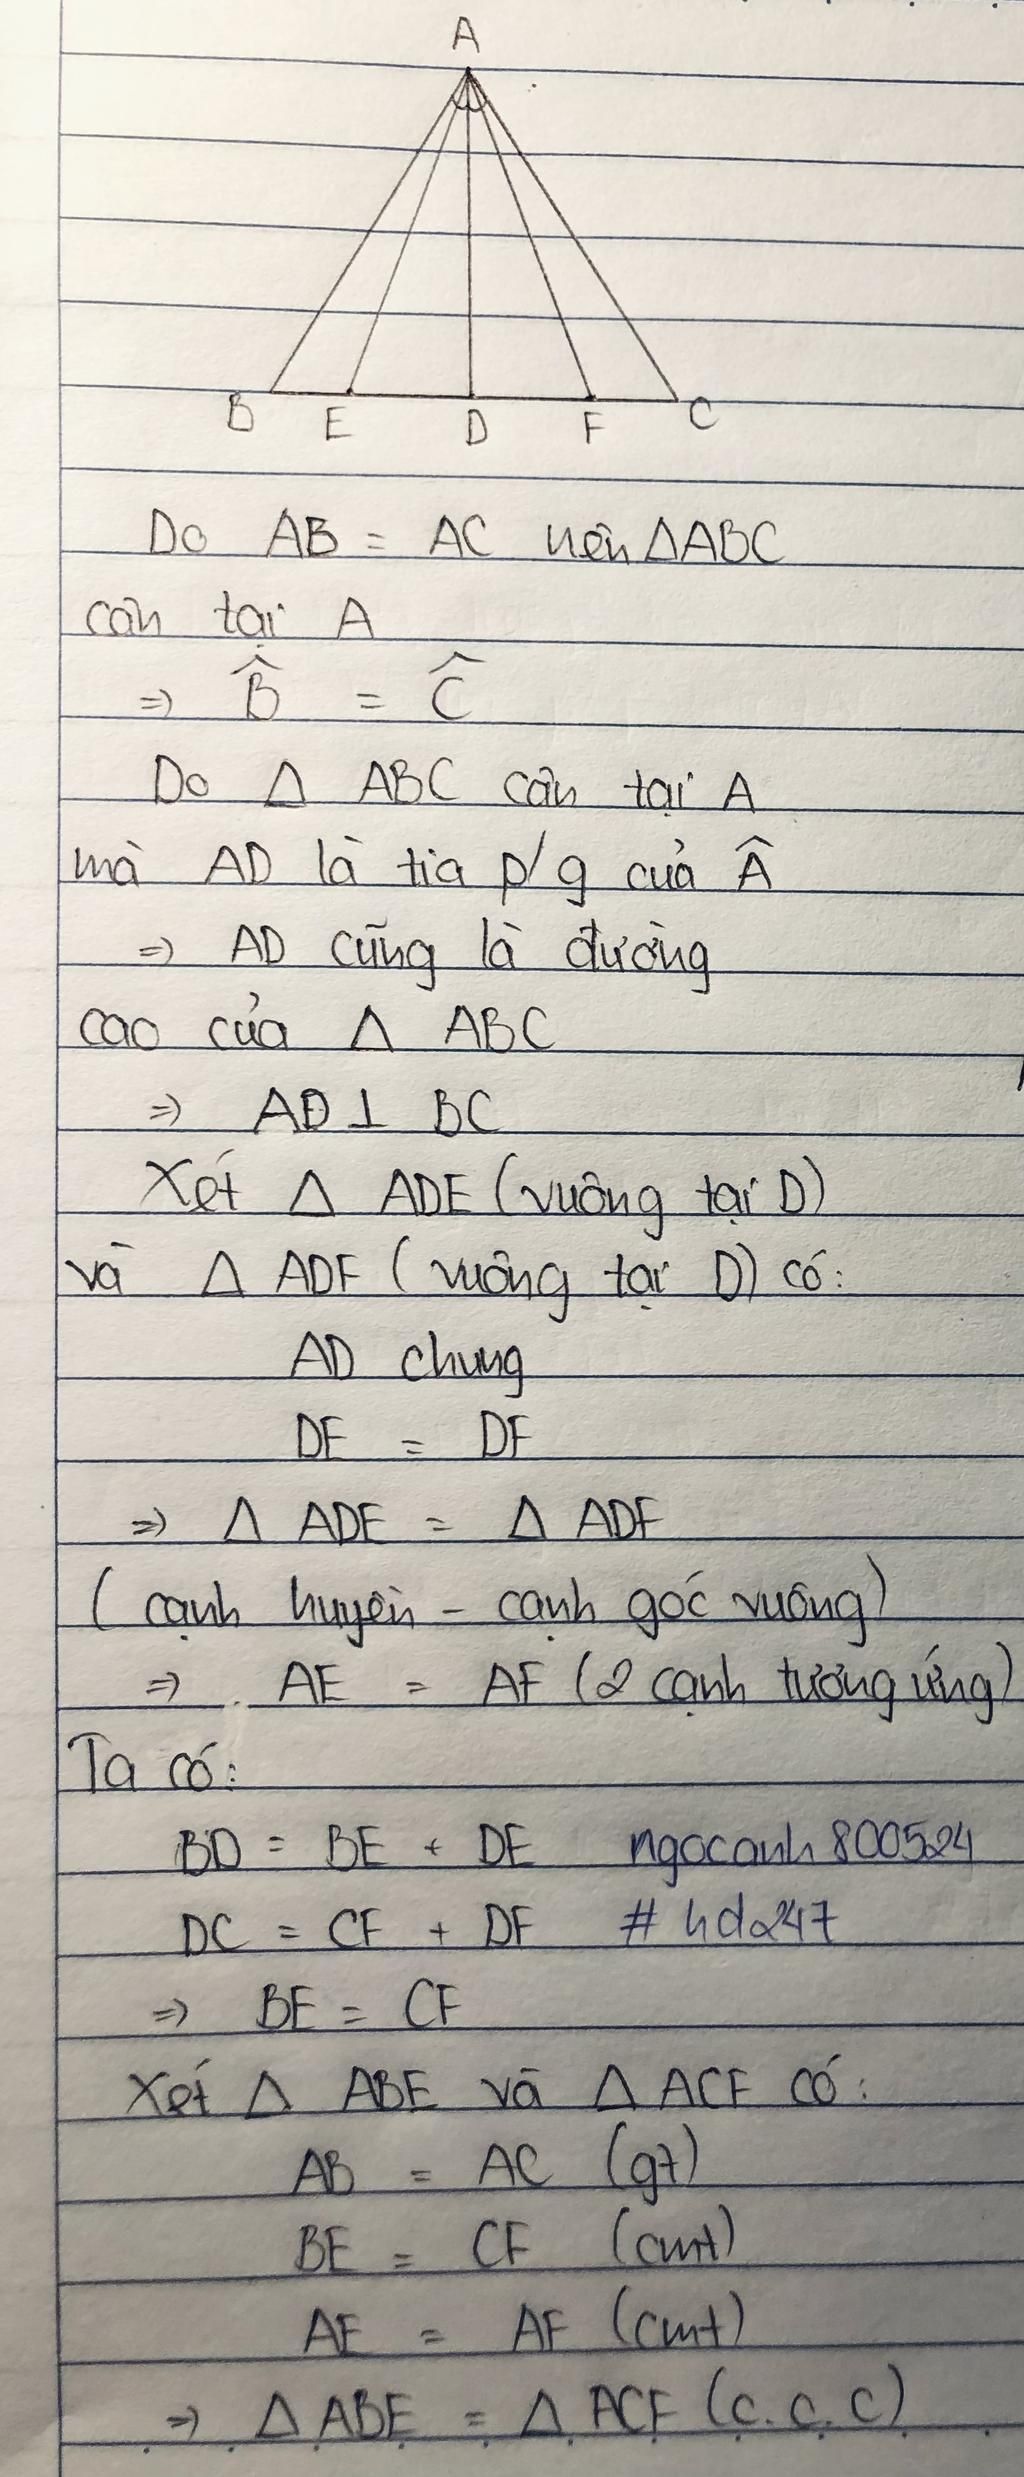 A
B E D F C
Do AB = AC nên ΔABC
cân tại A
=> B̂ = Ĉ
Do Δ ABC cân tại A
mà AD là tia p/g của Â
=> AD cũng là đường
cao của Δ ABC
=> AD ⊥ BC
Xét Δ ADE (vuông tại D)
và Δ ADF (vuông tại D) có:
AD chung
DE = DF
=> Δ ADE = Δ ADF
(cạnh huyền - cạnh góc vuông)
=> AE = AF (2 cạnh tương ứng)
Ta có:
BD = BE + DE ngocanh800524
DC = CF + DF # hd247
=> BE = CF
Xét Δ ABE và Δ ACF có:
AB = AC (gt)
BE = CF (cmt)
AE = AF (cmt)
=> Δ ABE = Δ ACF (c.c.c)